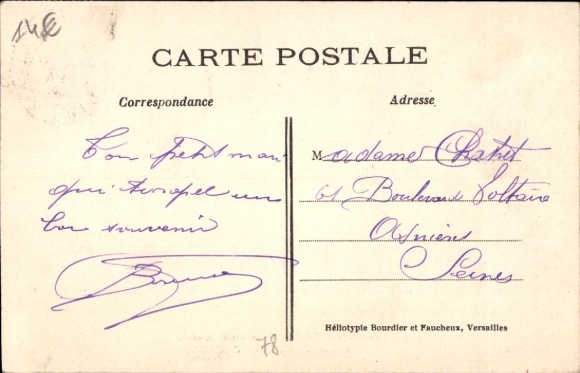 CARTE POSTALE
Correspondance
Adresse
Ton petit mari
qui un
bon souvenir
Madame Chatret
61 Boulevard Voltaire
Asnières
Seine
Héliotypie Bourdier et Faucheux, Versailles
78